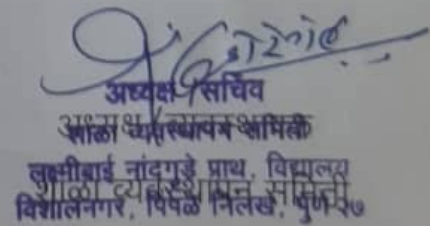 अध्यक्ष / सचिव
अध्यक्ष
शाळा व्यवस्थापन समिती
लक्ष्मीबाई नांदगुडे प्राथ. विद्यालय
शाळा व्यवस्थापन समिती
विशालनगर, पिंपळे निलख, पुणे २७